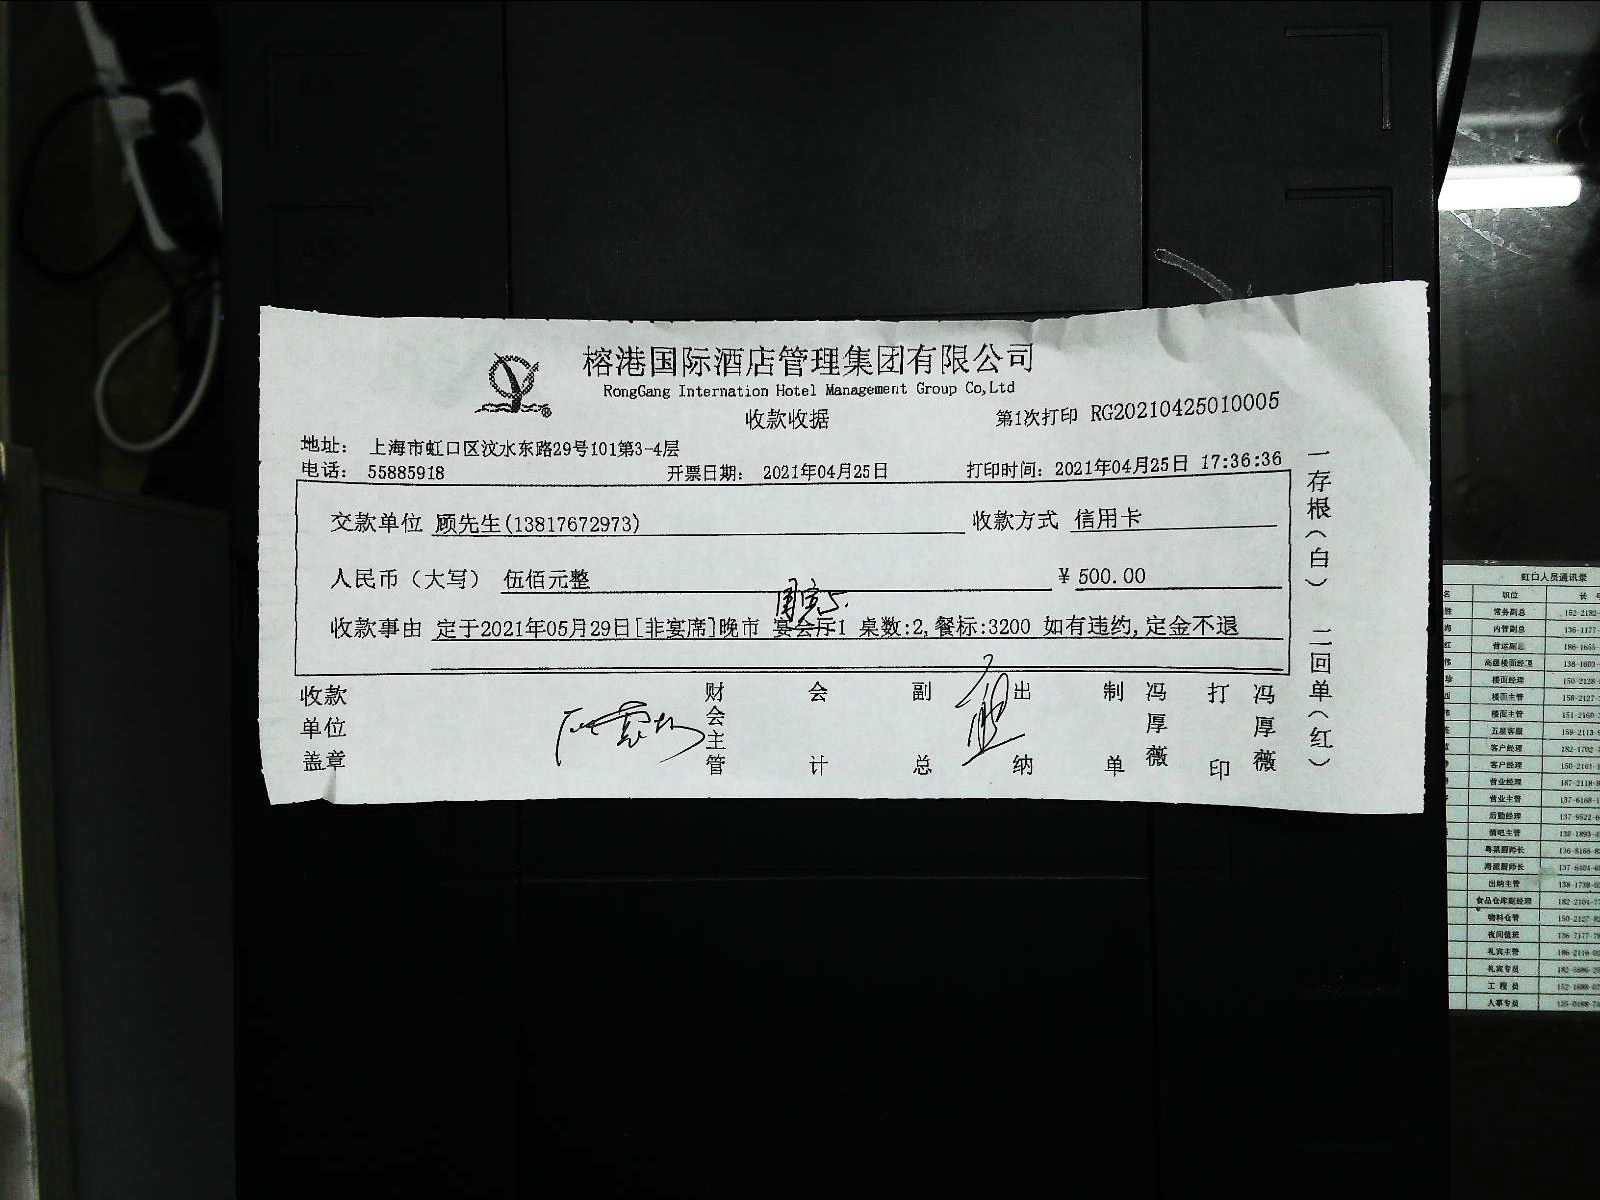 榕港国际酒店管理集团有限公司
RongGang Internation Hotel Management Group Co,Ltd
收款收据
第1次打印 RG20210425010005
地址： 上海市虹口区汶水东路29号101第3-4层
电话： 55885918 开票日期： 2021年04月25日 打印时间：2021年04月25日 17:36:36
交款单位 顾先生(13817672973) 收款方式 信用卡
人民币（大写） 伍佰元整 ￥500.00
收款事由 定于2021年05月29日[非宴席]晚市 宴会厅1 桌数:2,餐标:3200 如有违约,定金不退
收款单位盖章 财会主管 会计 副总 出纳 制单 冯厚薇 打印 冯厚薇
一存根（白） 二回单（红）
虹口人员通讯录
职位
常务副总
内管副总
营运副总
高级楼面经理
楼面经理
楼面主管
楼面主管
五星客服
客户经理
客户经理
营业经理
营业主管
后勤经理
酒吧主管
粤菜厨师长
海派厨师长
出纳主管
食品仓库副经理
物料仓管
夜间值班
礼宾主管
礼宾专员
工程员
人事专员